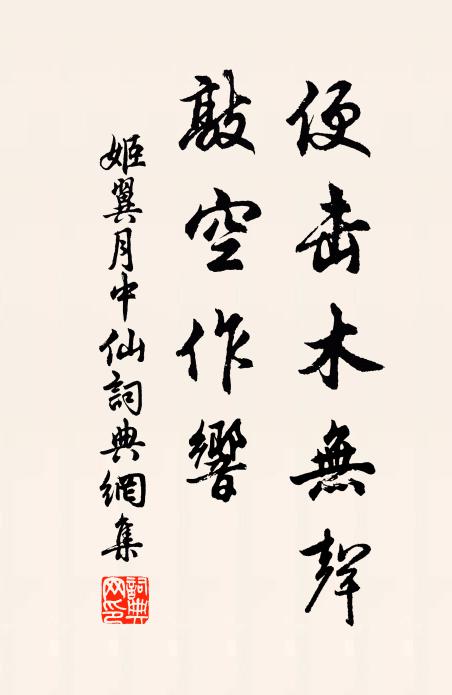 便击木無聲
敲空作響
姬翼月中仙詞典網集
詞典网印